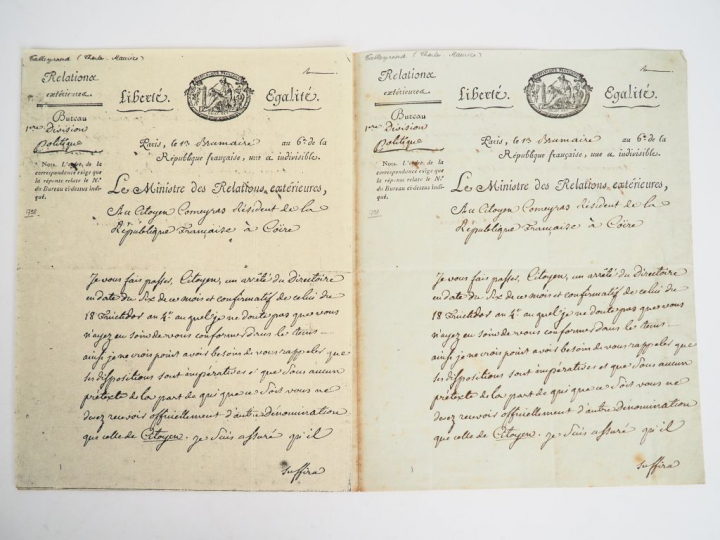 Talleyrand (Charles-Maurice)
Relations
extérieures
Liberté.
Egalité.
Bureau
1ere Division
Politique
Paris, le 13 Brumaire au 6e de la
République française, une & indivisible.
Nota. L'ordre de la
correspondance exige que
la réponse relate le No.
du Bureau ci-dessus indi-
qué.
Le Ministre des Relations extérieures,
Au Citoyen Comeyras Résident de la
République Française à Coire
Je vous fais passer, Citoyen, un arrêté du Directoire
en date du Six de ce mois et confirmatif de celui du
18 fructidor an 4e auquel je ne doute pas que vous
n'ayez eu soin de vous conformer dans le tems
ainsi je ne crois point avoir besoin de vous rappeler que
ses dispositions sont impératives et que Sous aucun
prétexte de la part de qui que ce Soit vous ne
devez recevoir officiellement d'autre Dénomination
que celle de Citoyen. je Suis assuré qu'il
suffira
Talleyrand (Charles-Maurice)
Relations
extérieures
Liberté.
Egalité.
Bureau
1ere Division
Politique
Paris, le 13 Brumaire au 6e de la
République française, une & indivisible.
Nota. L'ordre de la
correspondance exige que
la réponse relate le No.
du Bureau ci-dessus indi-
qué.
Le Ministre des Relations extérieures,
Au Citoyen Comeyras Résident de la
République Française à Coire
Je vous fais passer, Citoyen, un arrêté du Directoire
en date du Six de ce mois et confirmatif de celui du
18 fructidor an 4e auquel je ne doute pas que vous
n'ayez eu soin de vous conformer dans le tems
ainsi je ne crois point avoir besoin de vous rappeler que
ses dispositions sont impératives et que Sous aucun
prétexte de la part de qui que ce Soit vous ne
devez recevoir officiellement d'autre Dénomination
que celle de Citoyen. je Suis assuré qu'il
suffira